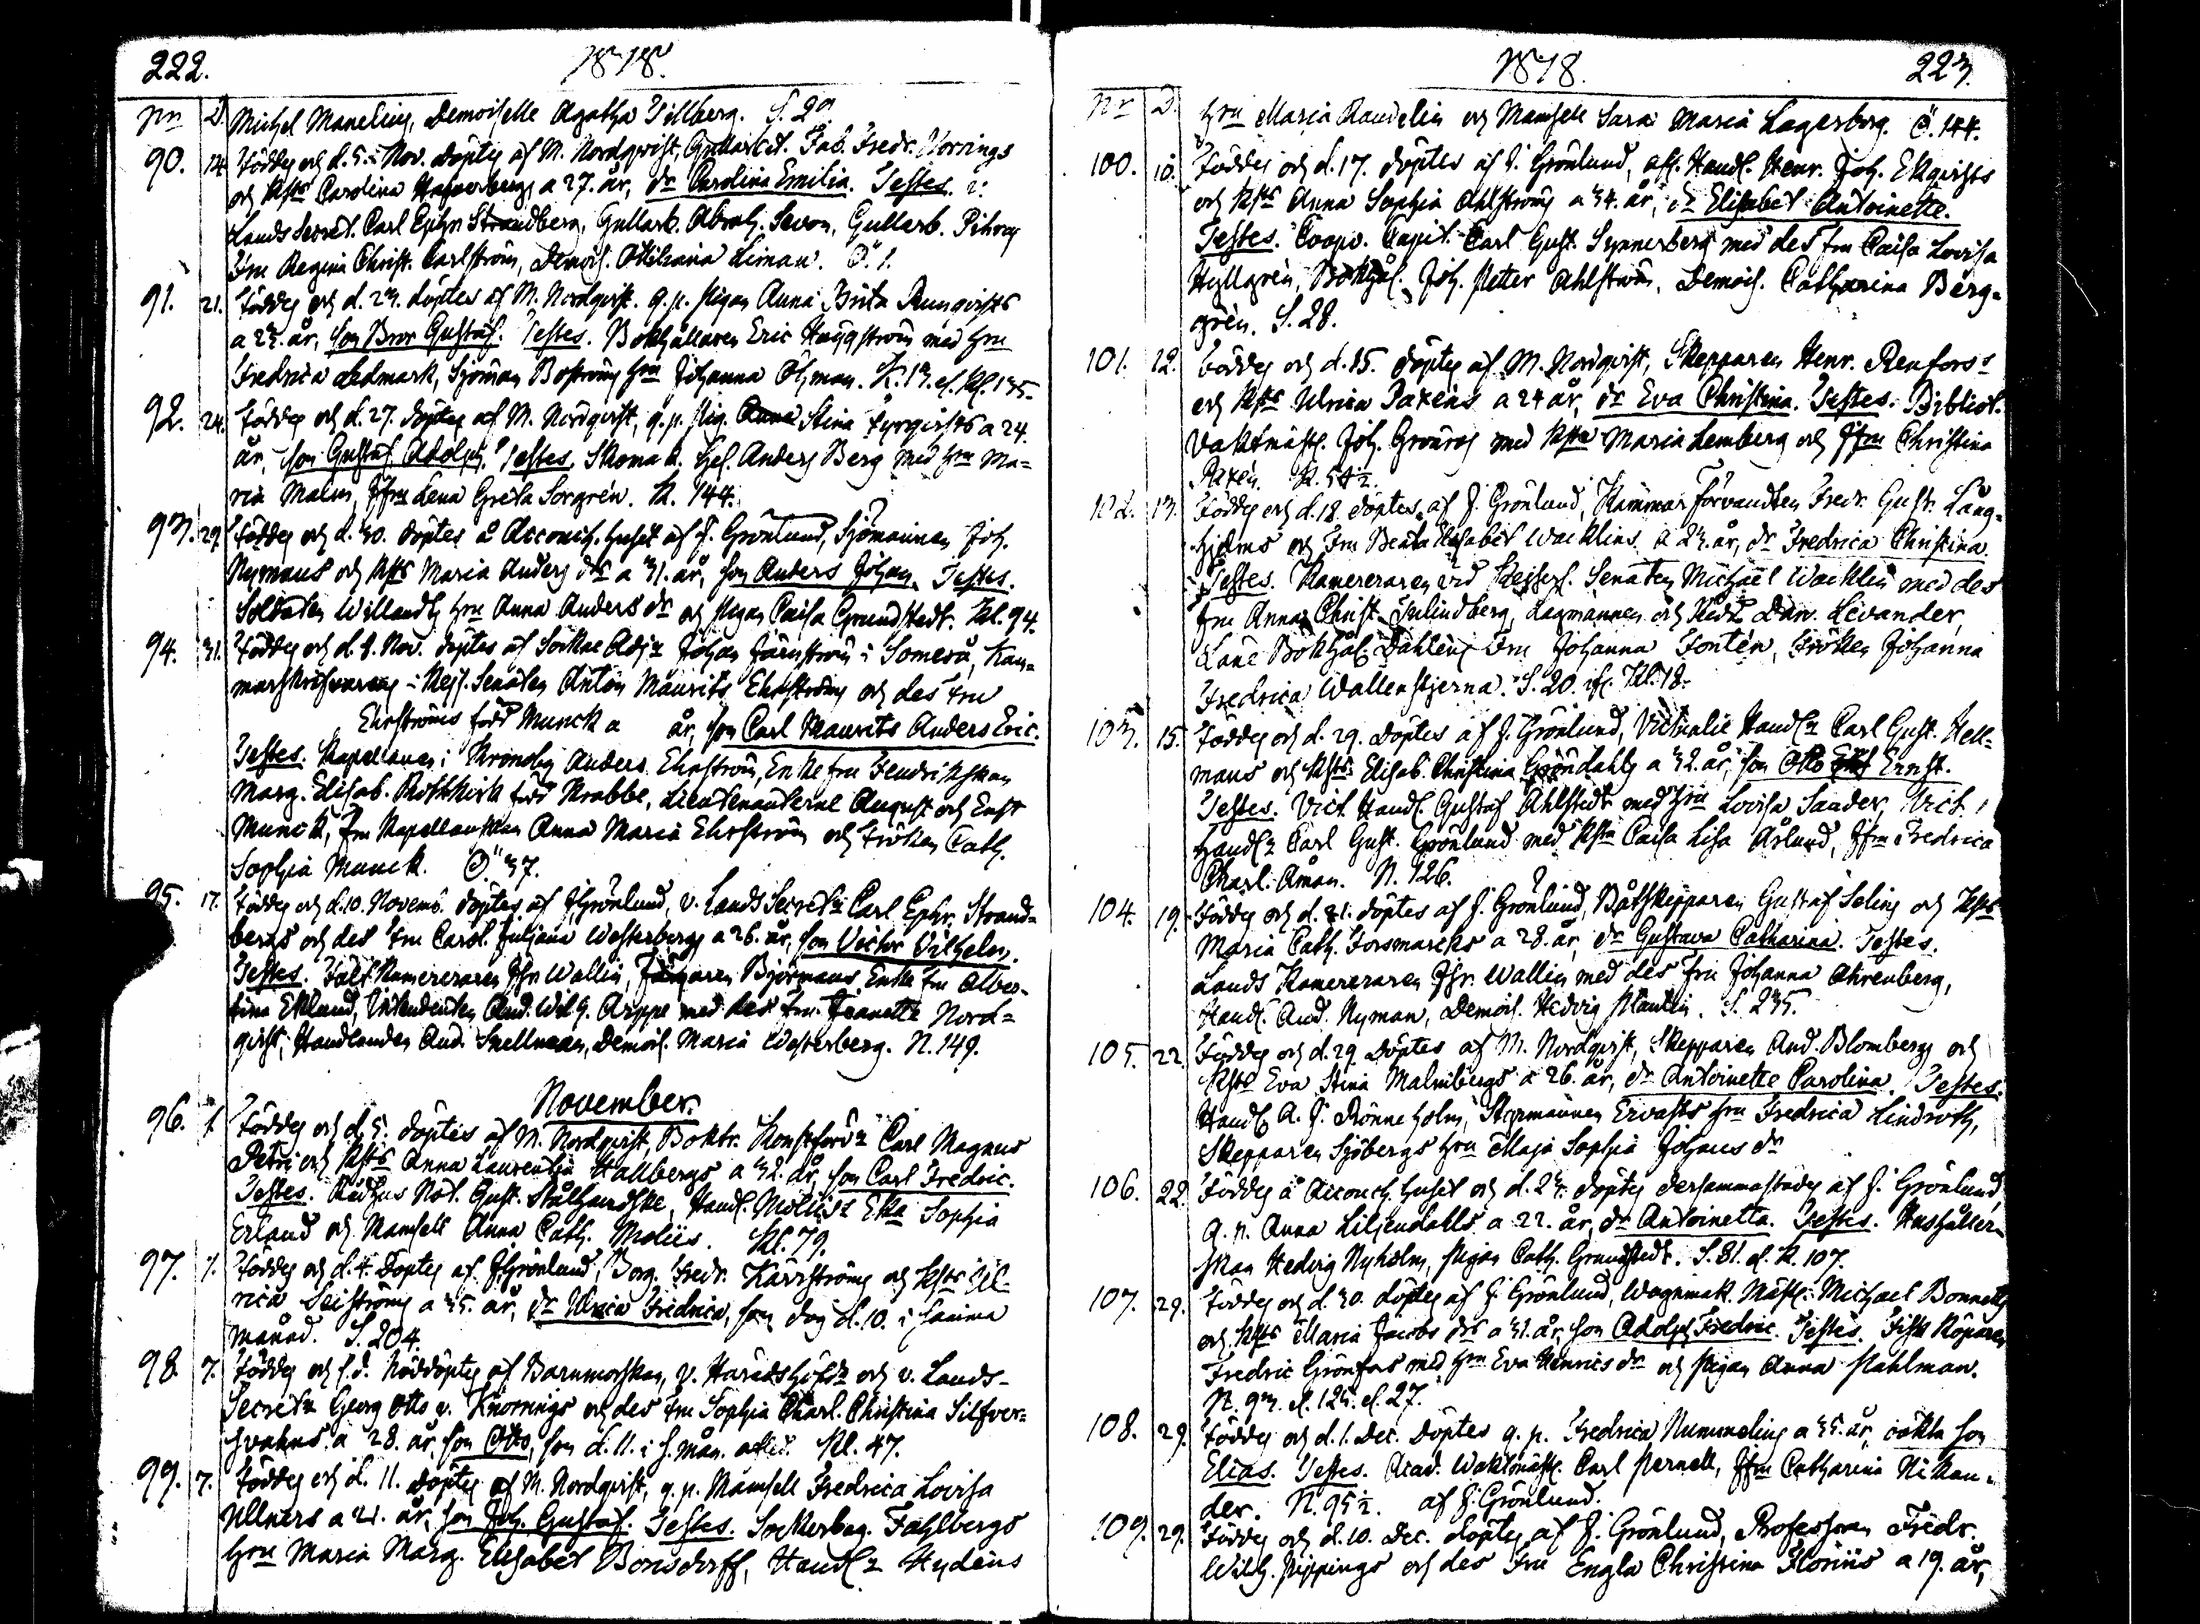 222. 1818.
Nrn D. Michel Manelius, Demoiselle Agatha Tillberg. S. 20.
90. 14. Föddes och d. 5. i Nov. döptes af M. Nordqvist, Gullarbet. Fab. Fredr. Norrings
och Hfts Carolina Hagerbergs a 27. år, dr Carolina Emilia. Testes.
Lands Secret. Carl Ephr. Strandberg, Gullarb. Abrah. Sevon, Gullarb. Pihren
Fru Regina Christ. Carlström, Demois. Liman. Ö. 1.
91. 21. Föddes och d. 23. döptes af M. Nordqvist. q. p. Pigan Anna Brita Runqvists
a 23. år, son Bror Gustaf. Testes. Bokhållaren Eric Häggström med Hru
Fredrica Ledmark, Sjöman Boströms Hru Johanna Öhman. K. 13. el. Kl. 135.
92. 24. Föddes och d. 27. döptes af M. Nordqvist, q. p. Pig. Stina Fyrqvists a 24.
år, son Gustaf Adolph. Testes. Skomak. Ges. Anders Berg med Hru Ma=
ria Malm, Jfru Lena Greta Sorgrén. K. 144.
93. 29. Föddes och d. 30. döptes å Accouch. huset af J. Grönlund, Sjömannen Joh.
Nymans och Hfts Maria Anders drs a 31. år, son Anders Johan. Testes.
Soldaten Willandts Hru Anna Anders dr och Pigan Caisa Grundstedt. Kl. 94.
94. 31. Föddes och d. 8. Nov. döptes af Sockne Adj. Johan Järnström i Somero, Kam=
marskrifvaren i Kejs. Senaten Anton Maurits Ehrström och des Fru
Ehrströms född Munck a år, son Carl Maurits Anders Eric.
Testes. Kapellanen i Kronoby Anders Ehrström, Enkefru Fendrikskan
Marg. Elisab. Rothkirk född Krabbe, Lieutenanterne August och Ernst
Munck, Fru Kapellanskan Anna Maria Ehrström och Fröken Cath.
Sophia Munck. Ö. 37.
95. 17. Föddes och d. 10. Novemb. döptes af J. Grönlund, v. Lands Secret. Carl Ephr. Strand=
bergs och des Fru Carol. Juliana Westerbergs a 26. år, son Victor Vilhelm.
Testes. Fält Kamereraren Jfr Wallin, Björmans Enke Fru Alber=
tina Eklund, Intendenten And. Wilh. Arppe med des Fru Jeanette Nord=
qvist, Handlanden And. Snellman, Demois. Maria Westerberg. N. 149.
November.
96. 1. Föddes och d. 5. döptes af M. Nordqvist, Boktr. Konstförv. Carl Magnus
Petri och Hfts Anna Laurentia Hallbergs a 32. år, son Carl Fredric.
Testes. Rådhus Not. Gust. Stålhandske, Handl. Molii Eka Sophia
Erland och Mamsell Anna Cath. Molius. Kl. 79.
97. 1. Föddes och d. 4. döptes af J. Grönlund, Borg. Fredr. Kärrströms och Hfts Ul=
rica Leiströms a 35. år, dr Ulrica Fredrica, som dog d. 10. i samma
månad. S. 204.
98. 7. Föddes och s. d. nöddöptes af Barnmorskan, v. Häradshöfd. och v. Lands=
Secret. Georg Otto v. Knorrings och des Fru Sophia Charl. Christina Silfver=
svahns a 28. år, son Otto, som d. 11. i s. mån. afled. Kl. 47.
99. 7. Föddes och d. 11. döptes af M. Nordqvist, q. p. Mamsell Fredrica Lovisa
Ullners a 21. år, son Joh. Gustaf. Testes. Sockerbag. Fahlbergs
Hru Maria Marg. Elisabet Bonsdorff, Handl. Hydéns
1818. 223.
Nr D. Hru Maria Randelin och Mamsell Sara Maria Lagerborg. Ö. 144.
100. 10. Föddes och d. 17. döptes af J. Grönlund, aff. Handl. Henr. Joh. Ekqvists
och Hfts Anna Sophia Ahlströms a 34. år, dr Elisabet Antoinette.
Testes. Coopv. Capit. Carl Gust. Synnerberg med des Fru Caisa Lovisa
Hyllgrén, Bokhål. Joh. Petter Ahlström, Demois. Catharina Berg=
grén. S. 28.
101. 12. Föddes och d. 15. döptes af M. Nordqvist, Skepparen Henr. Renfors
och Hfts Ulrica Paxéns a 24 år, dr Eva Christina. Testes. Bibliot.
Vaktmäst. Joh. Grönros med Hfta Maria Lemberg och Jfru Christina
Paxén. K. 54½.
102. 13. Föddes och d. 18. döptes af J. Grönlund, Kammar Förvandten Fredr. Gust. Lång=
hjelms och Fru Beata Elisabet Wacklins a 23. år, dr Fredrica Christina.
Testes. Kamereraren vid Kejserl. Senaten Michaël Wacklin med des
Fru Anna Christ. Julindberg, Lagmannen och Ridd. Dan. Levander,
Läne Bokhål. Dahlén, Fru Johanna Fontén, Fröken Johanna
Fredrica Wallenstjerna. S. 20. Kl. 18.
103. 15. Föddes och d. 29. döptes af J. Grönlund, Victualie Handl. Carl Gust. Hell=
mans och Hfts Elisab. Christina Gröndahls a 32. år, son Otto Ernst.
Testes. Vict. Handl. Gustaf Ahlstedt med Hru Lovisa Sander, Vict.
Handl. Carl Gust. Grönlund med Hfta Caisa Lisa Åslund, Jfru Fredrica
Charl. Åman. N. 126.
104. 19. Föddes och d. 21. döptes af J. Grönlund, Båtskepparen Gustaf Selins och Hfts
Maria Cath. Forsmarcks a 28. år, dr Gustava Catharina. Testes.
Lands Kamereraren Jfr. Wallin med des Fru Johanna Ahrenberg,
Handl. And. Nyman, Demois. Hedvig Plantin. S. 235.
105. 22. Föddes och d. 29 döptes af M. Nordqvist, Skepparen And. Blombergs och
Hfts Eva Stina Malmbergs a 26. år, dr Antoinette Carolina. Testes.
Handl. A. J. Rönneholm, Styrmannen Ervasts Hru Fredrica Lindroth,
Skepparen Sjöbergs Hru Maja Sophia Johans dr
106. 22. Föddes å Accouch. huset och d. 23. döptes dersammastädes af J. Grönlund,
q. p. Anna Liljendahls a 22. år, dr Antoinetta. Testes. Hushåller=
skan Hedvig Nyholm, Pigan Cath. Grundstedt. S. 81. el. K. 107.
107. 29. Föddes och d. 30. döptes af J. Grönlund, Wagnmak. Mäst. Michael Bonnetts
och Hfts Maria Jacobs drs a 31. år, son Adolph Fredric. Testes. Fisk Köparen
Fredric Grönfors med Hru Eva Henrics dr och Pigan Anna Pahlman.
N. 93. el. 125. el. 27.
108. 29. Föddes och d. 1. Dec. döptes q. p. Fredrica Nummelins a 35. år, oäkta son
Elias. Testes. Acad. Waktmäst. Carl Pernell, Jfru Catharina Nikan=
der. N. 95½. af J. Grönlund.
109. 29. Föddes och d. 10. Dec. döptes af J. Grönlund, Professoren Fredr.
Wilh. Pippings och des Fru Engla Christina Florins a 19. år,